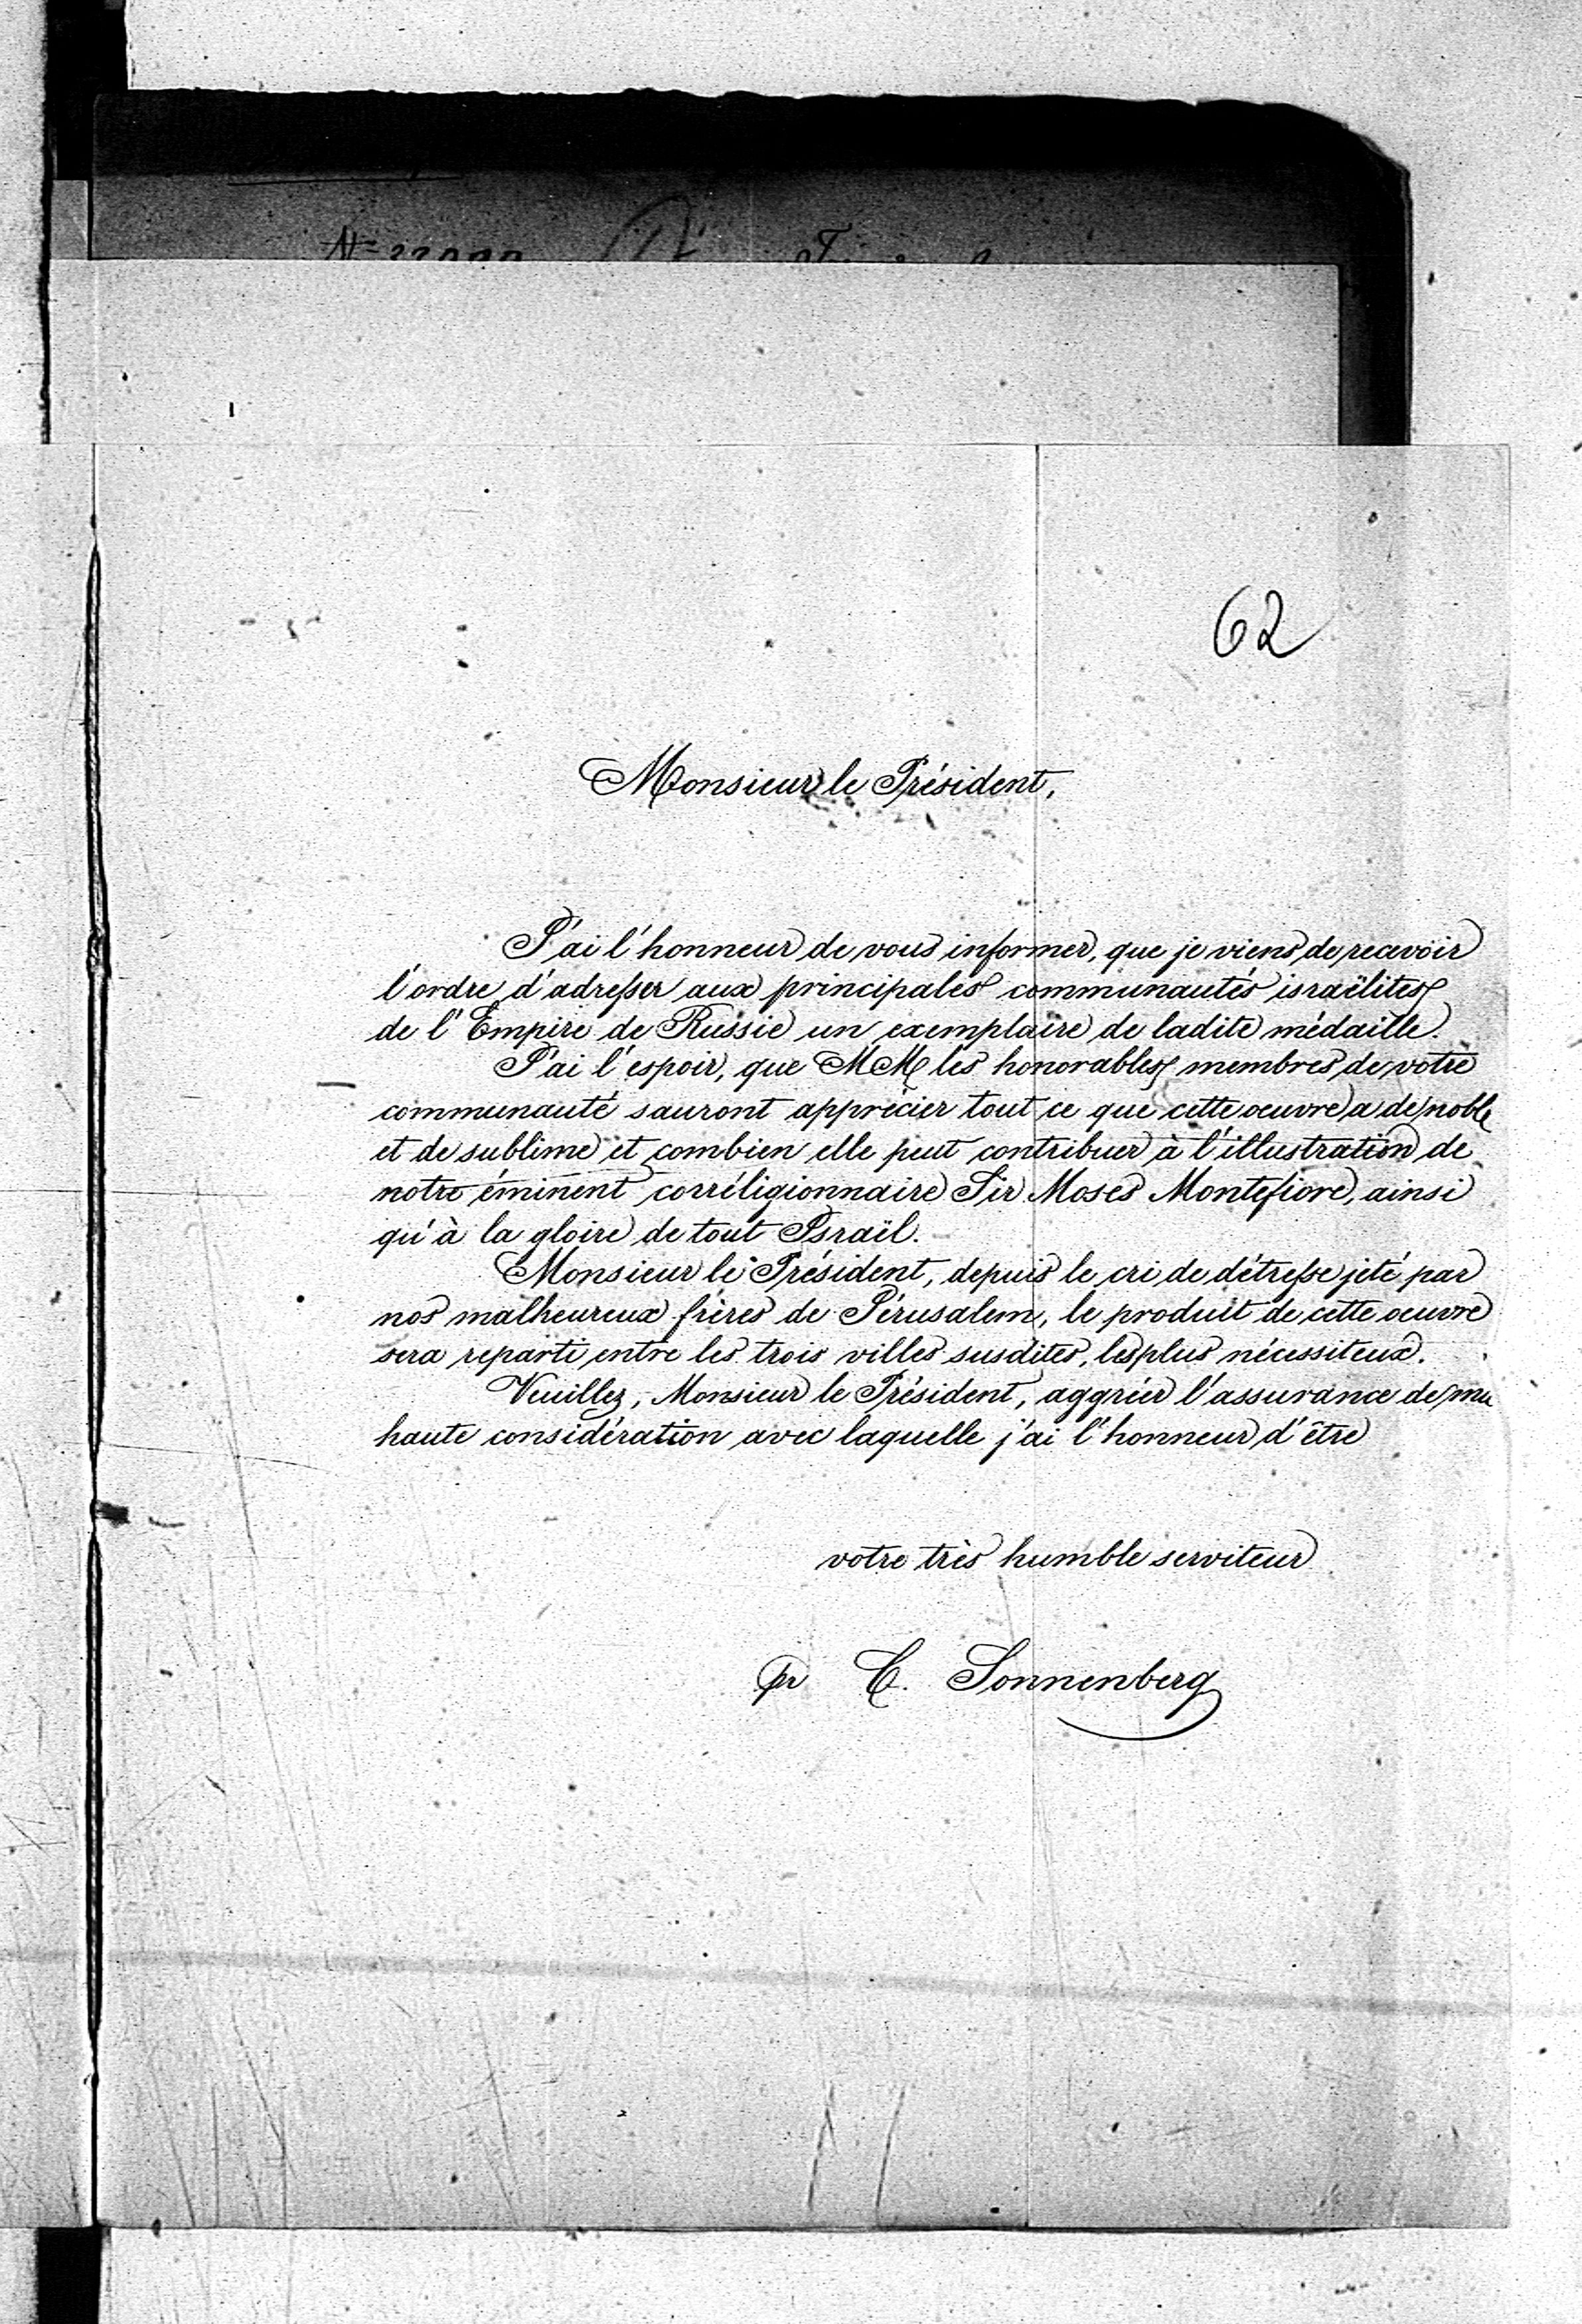 62
Monsieur le Président,
J'ai l'honneur de vous informer, que je viens de recevoir
l'ordre d'adresser aux principales communautés israëlites
de l'Empire de Russie un exemplaire de ladite médaille.
J'ai l'espoir, que MM les honorables membres de votre
communauté sauront apprécier tout ce que cette oeuvre a de noble
et de sublime et combien elle peut contribuer à l'illustration de
notre éminent corréligionnaire Sir Moses Montefiore, ainsi
qu'à la gloire de tout Israël.
Monsieur le Président, depuis le cri de détresse jeté par
nos malheureux frères de Jérusalem, le produit de cette oeuvre
sera reparti entre les trois villes susdites, les plus nécessiteux.
Veuillez, Monsieur le Président, aggréer l'assurance de ma
haute considération avec laquelle j'ai l'honneur d'être
votre très humble serviteur
pr C. Sonnenberg